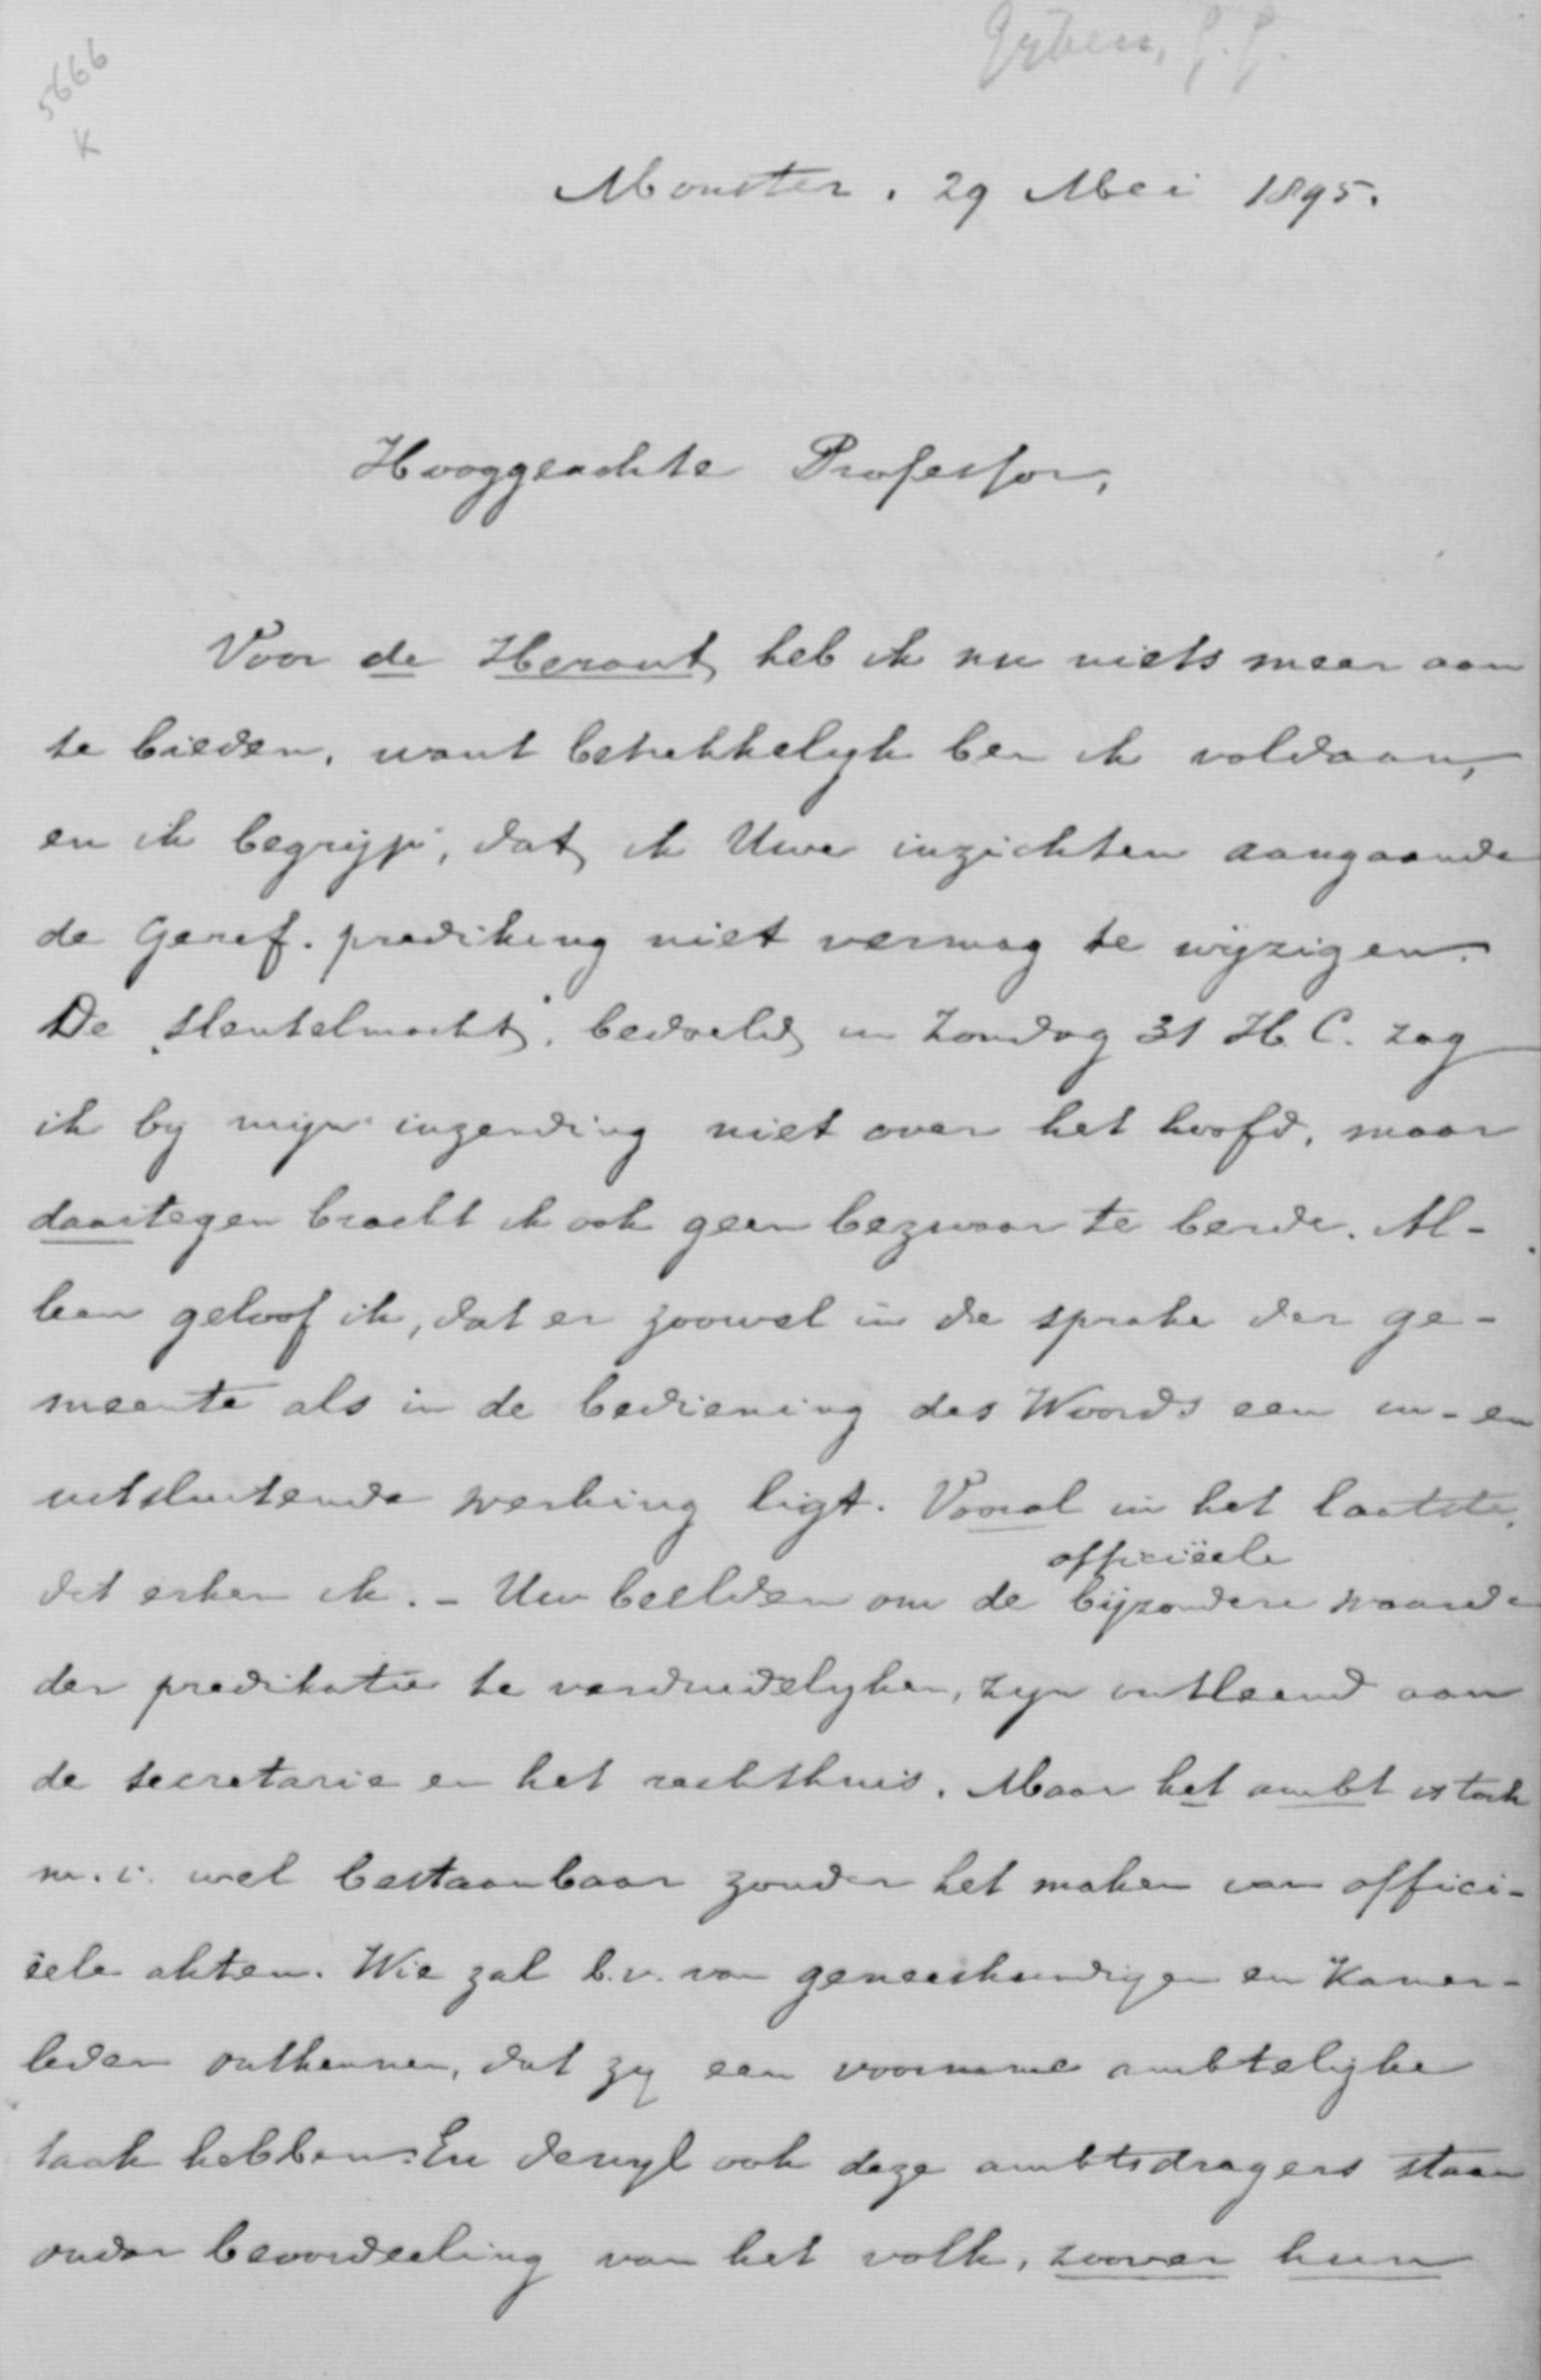 5666
K
Monster. 29 Mei 1895.
Hooggeachte Professor,
Voor de Heraut heb ik nu niets meer aan
te bieden, want betrekkelyk ben ik voldaan,
en ik begrijp, dat ik Uwe inzichten aangaande
de Geref. prediking niet vermag te wijzigen.
De „sleutelmacht", bedoeld in Zondag 31 H. C. zag
ik by mijn inzending niet over het hoofd, maar
daartegen bracht ik ook geen bezwaar te berde. Al-
leen geloof ik, dat er zoowel in de sprake der ge-
meente als in de bediening des Woords een in- en
uitsluitende werking ligt. Vooral in het laatste,
dit erken ik. - Uw beelden om de officiëele bijzondere waarde
der predikatie te verduidelyken, zyn ontleend aan
de secretarie en het rechthuis. Maar het ambt is toch
m. i. wel bestaanbaar zonder het maken van offici-
ëele akten. Wie zal b.v. van geneeskundigen en Kamer-
leden ontkennen, dat zy een voorname ambtelijke
taak hebben. En dewyl ook deze ambtsdragers staan
onder beoordeeling van het volk, zoover hun